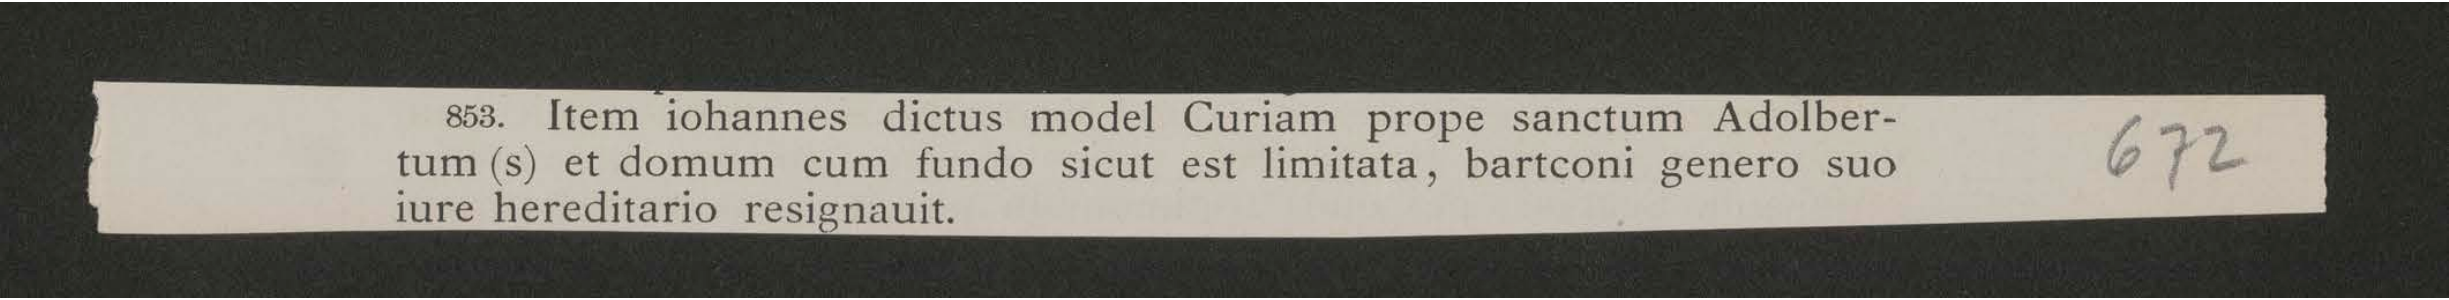 853. Item iohannes dictus model Curiam prope sanctum Adolber-
tum (s) et domum cum fundo sicut est limitata, bartconi genero suo
iure hereditario resignauit.
672